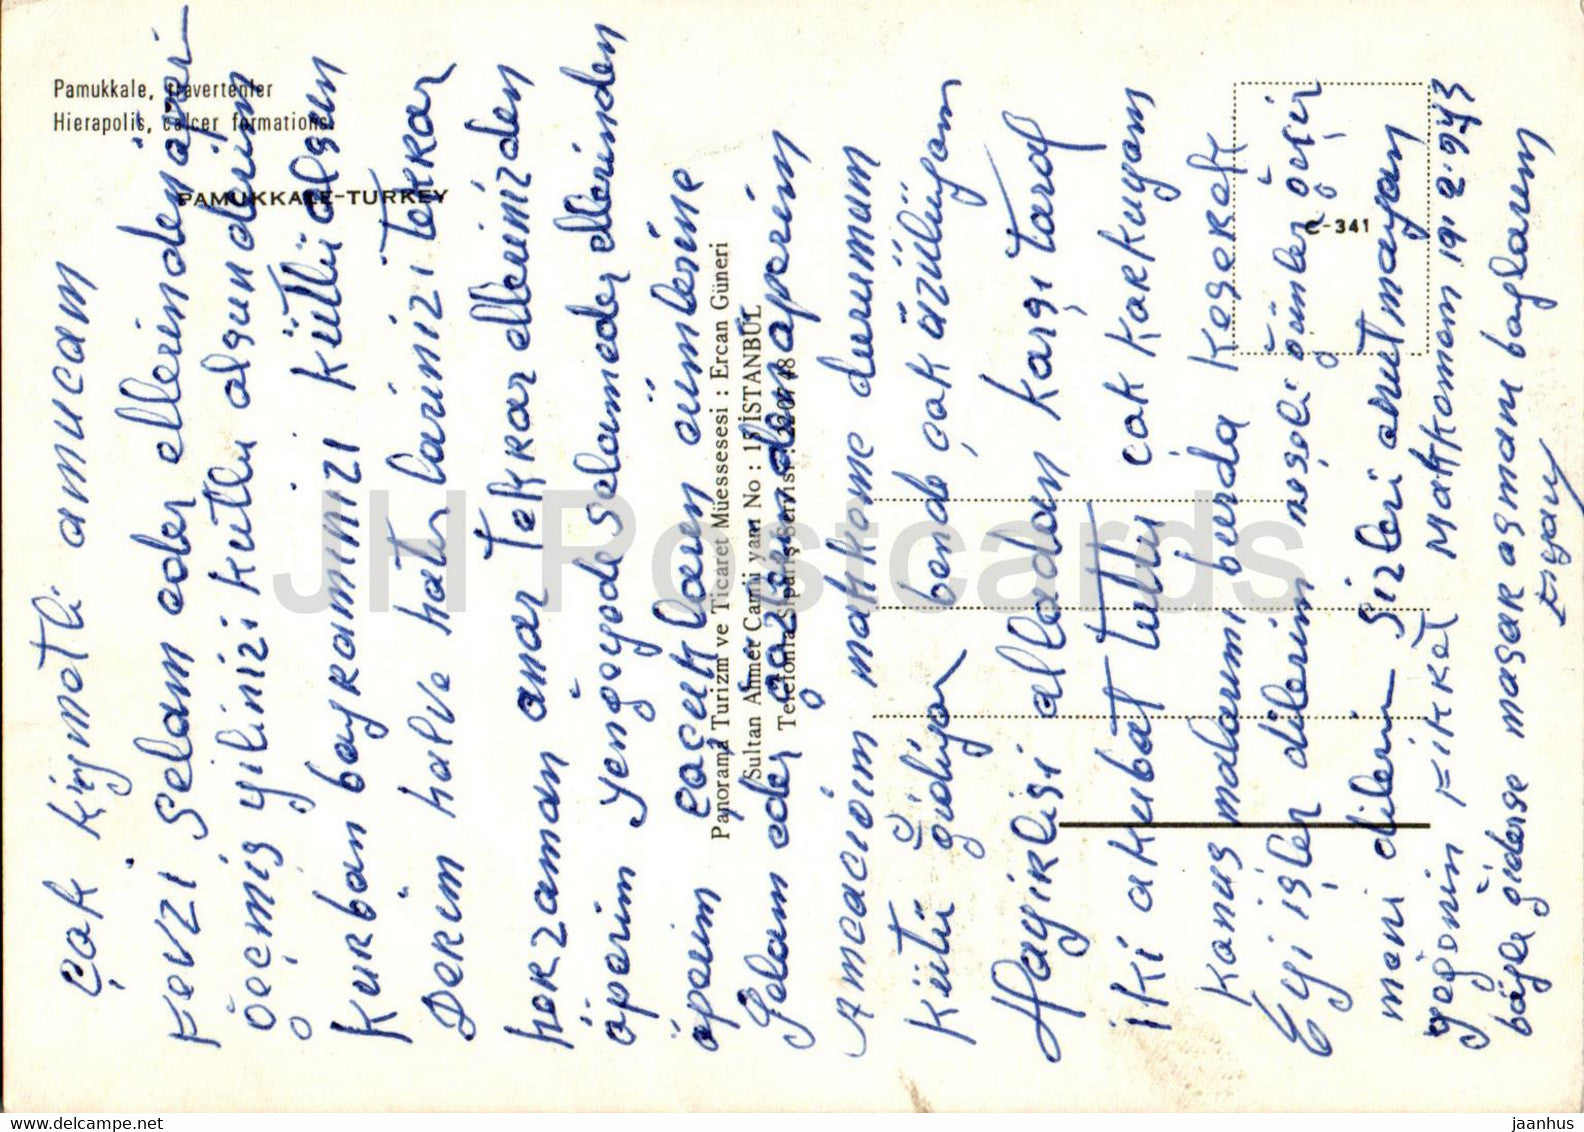 Pamukkale, travertenler
Hierapolis, calcer formations
PAMUKKALE-TURKEY
C-341
Panorama Turizm ve Ticaret Müessesesi : Ercan Güneri
Sultan Ahmet Camii yanı No : 15 İSTANBUL
Telefonla Sipariş Servisi :
Çok kıymetli amucam
Fevzi Selam eder ellerinden öper
Geçmiş yılınızı kutlu olsun derim
Kurban bayramınızı kütlü olsun
Derim halve hatır larınızı tekrar
herzaman önar tekrar ellerinizden
öperim yengeyede selameder ellerinden
öperim çoçukların cümlesine
Selam eder gözlerinden öperim
Amcacıım mahkome durumum
Kütü gidiyor bende çok üzülüyom
Hayırlısı alladan karşı taraf
iki avkubat tuttu çok korkuyom
Konuş malarımı burda keserek
Eyi işler dilerim neşeli günler geçir
meni dilerim sizleri unutmayan
yeğenin Fikret Mahkemem 19.2.973
böyle giderse masar asmam baglarem
JH Postcards
jaanhus